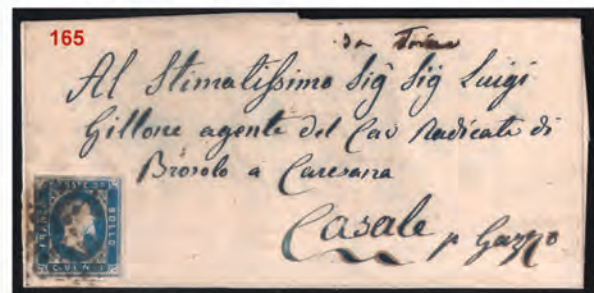 165
da Torino
Al Stimatissimo Sig Sig Luigi
Gillone agente del Cav Radicati di
Brosolo a Caresana
Casale p Gazzo
FRANCO
BOLLO
C. VENTI